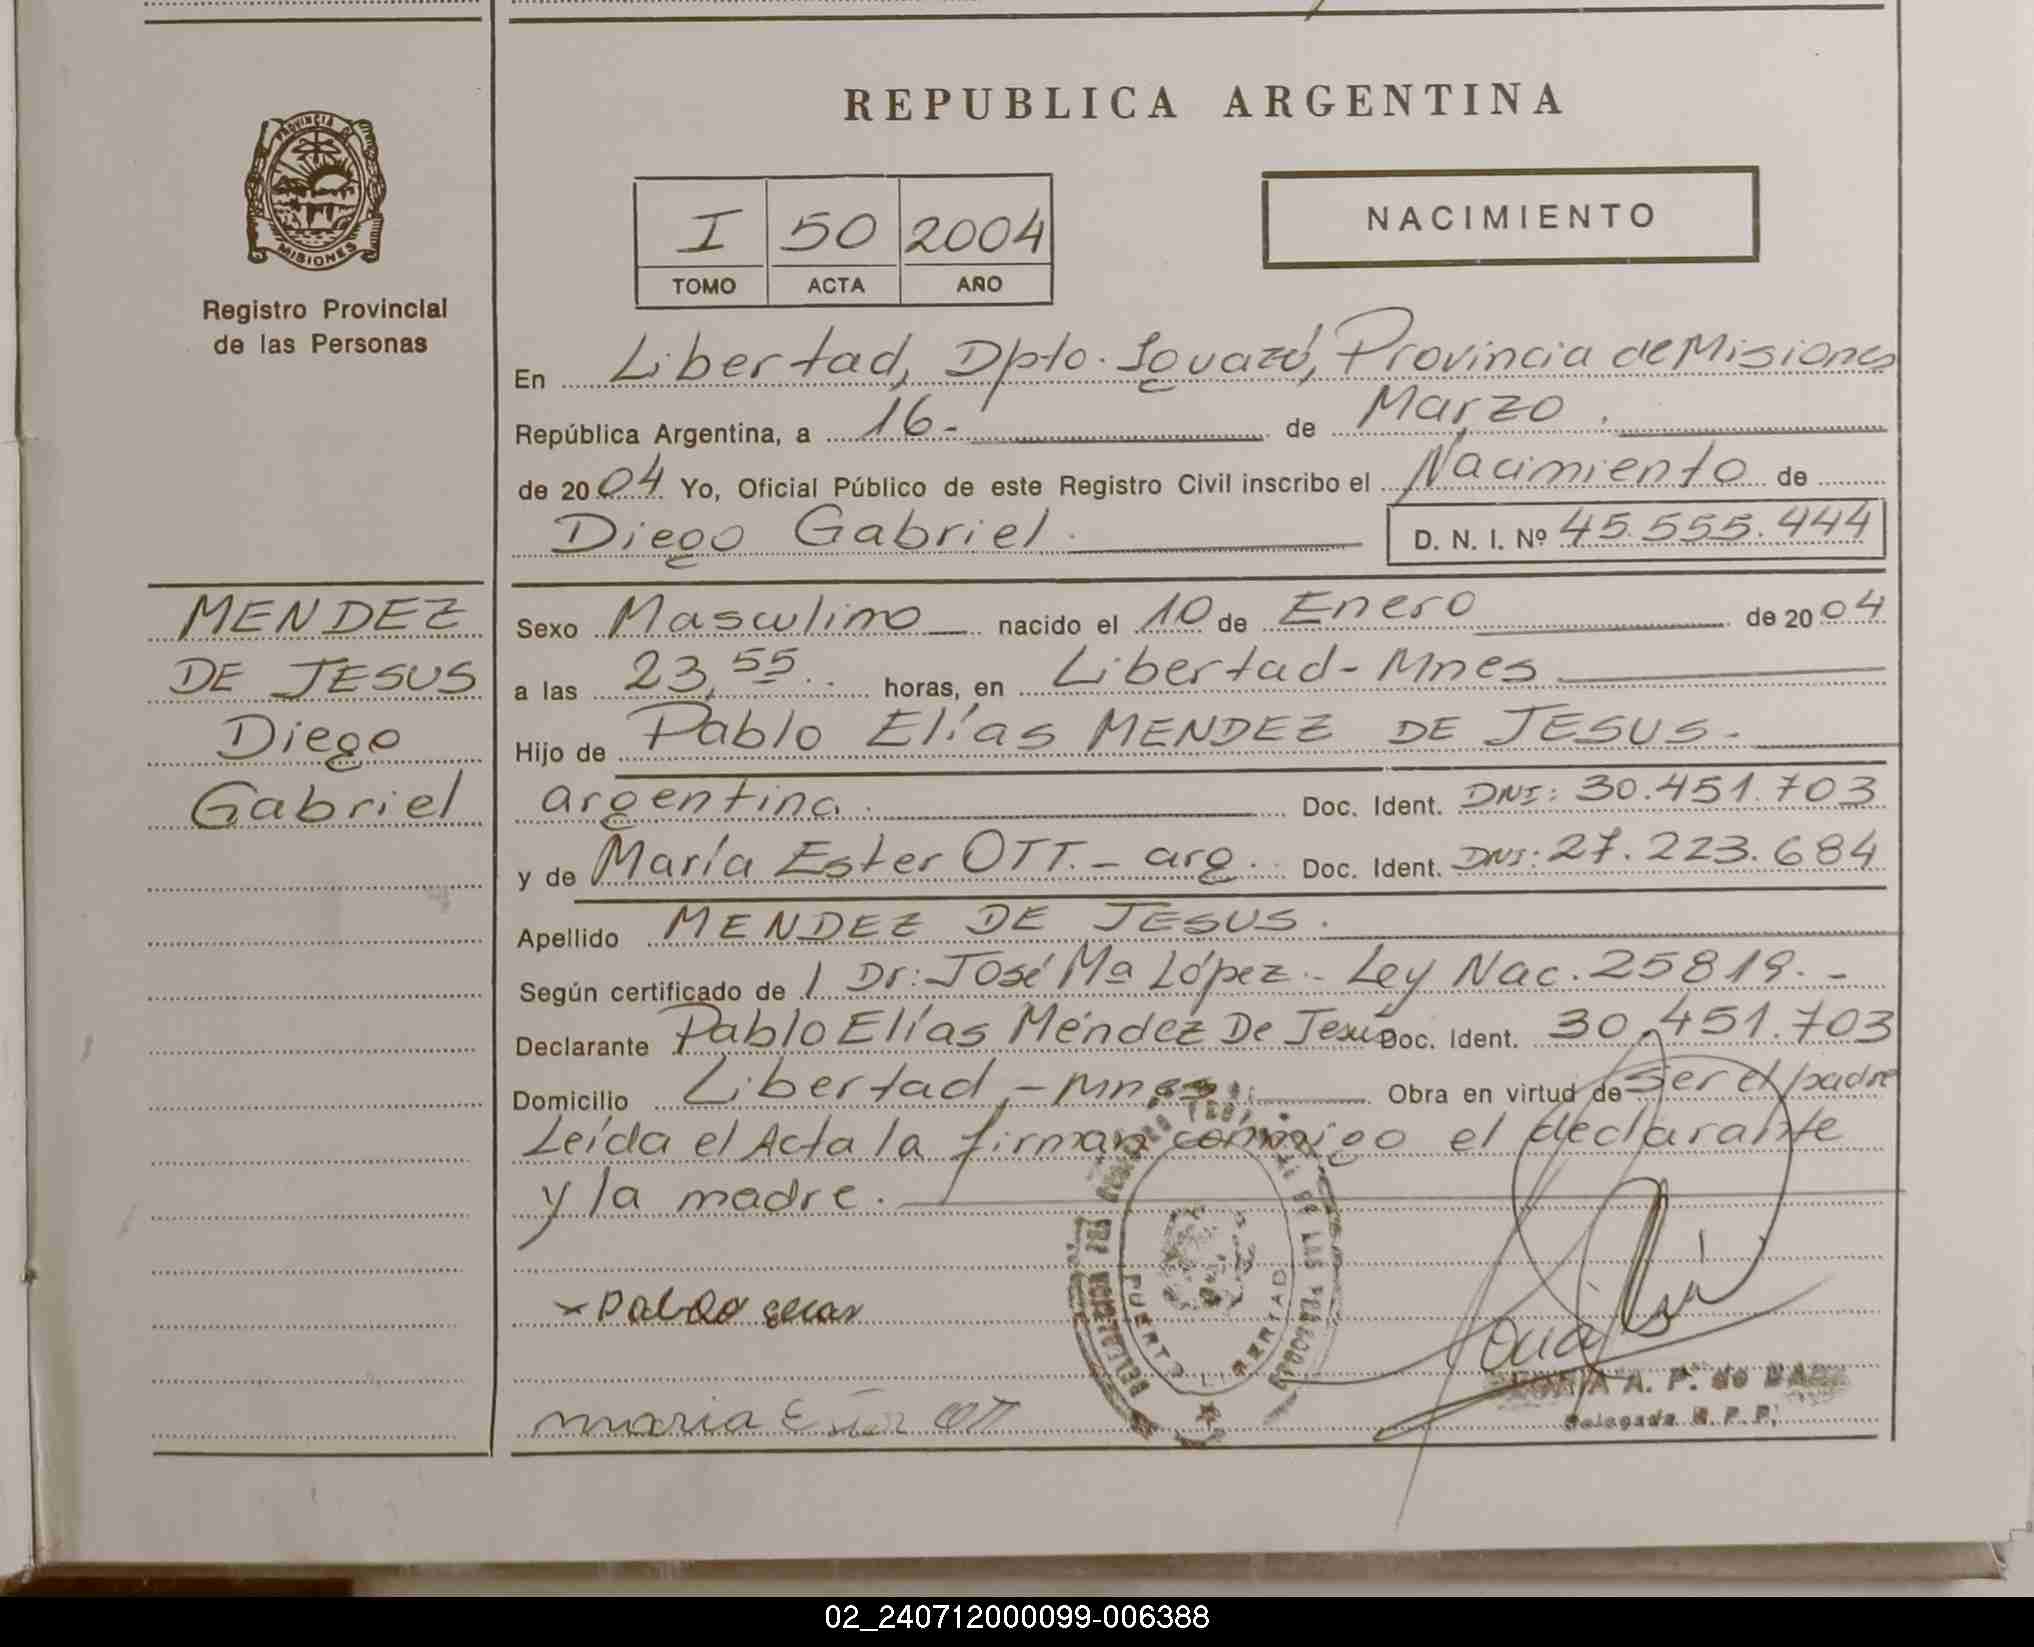 REPUBLICA ARGENTINA
PROVINCIA DE
MISIONES
Registro Provincial
de las Personas
I 50 2004
TOMO ACTA AÑO
NACIMIENTO
En Libertad, Dpto. Iguazú, Provincia de Misiones
República Argentina, a 16- de Marzo.
de 2004 Yo, Oficial Público de este Registro Civil inscribo el Nacimiento de
Diego Gabriel. D. N. I. Nº 45.555.444
MENDEZ
DE JESUS
Diego
Gabriel
Sexo Masculino nacido el 10 de Enero de 2004
a las 23,55.. horas, en Libertad- Mnes
Hijo de Pablo Elías MENDEZ DE JESUS.
argentina. Doc. Ident. DNI: 30.451.703
y de María Ester OTT.- arg. Doc. Ident. DNI: 27.223.684
Apellido MENDEZ DE JESUS.
Según certificado de / Dr: José Mª López.- Ley Nac. 25819.-
Declarante Pablo Elías Méndez De Jesús Doc. Ident. 30.451.703
Domicilio Libertad,- Mnes. Obra en virtud de ser el padre
Leída el Acta la firman conmigo el declarante
y la madre.
PUERTO LIBERTAD
DE LAS PERSONAS
x Pablo
maria Ester OTT
A. P. de
Delegada R. P. P.
02_240712000099-006388